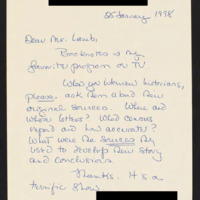 25 January 1998
Dear Mr. Lamb,
Booknotes is my
favorite program on TV
When you interview historians,
please ask them about new
original sources. Where and
when letters? What census
record and how accurate?
What were the sources they
used to develop new story
and conclusions.
Thanks. It's a
terrific show.